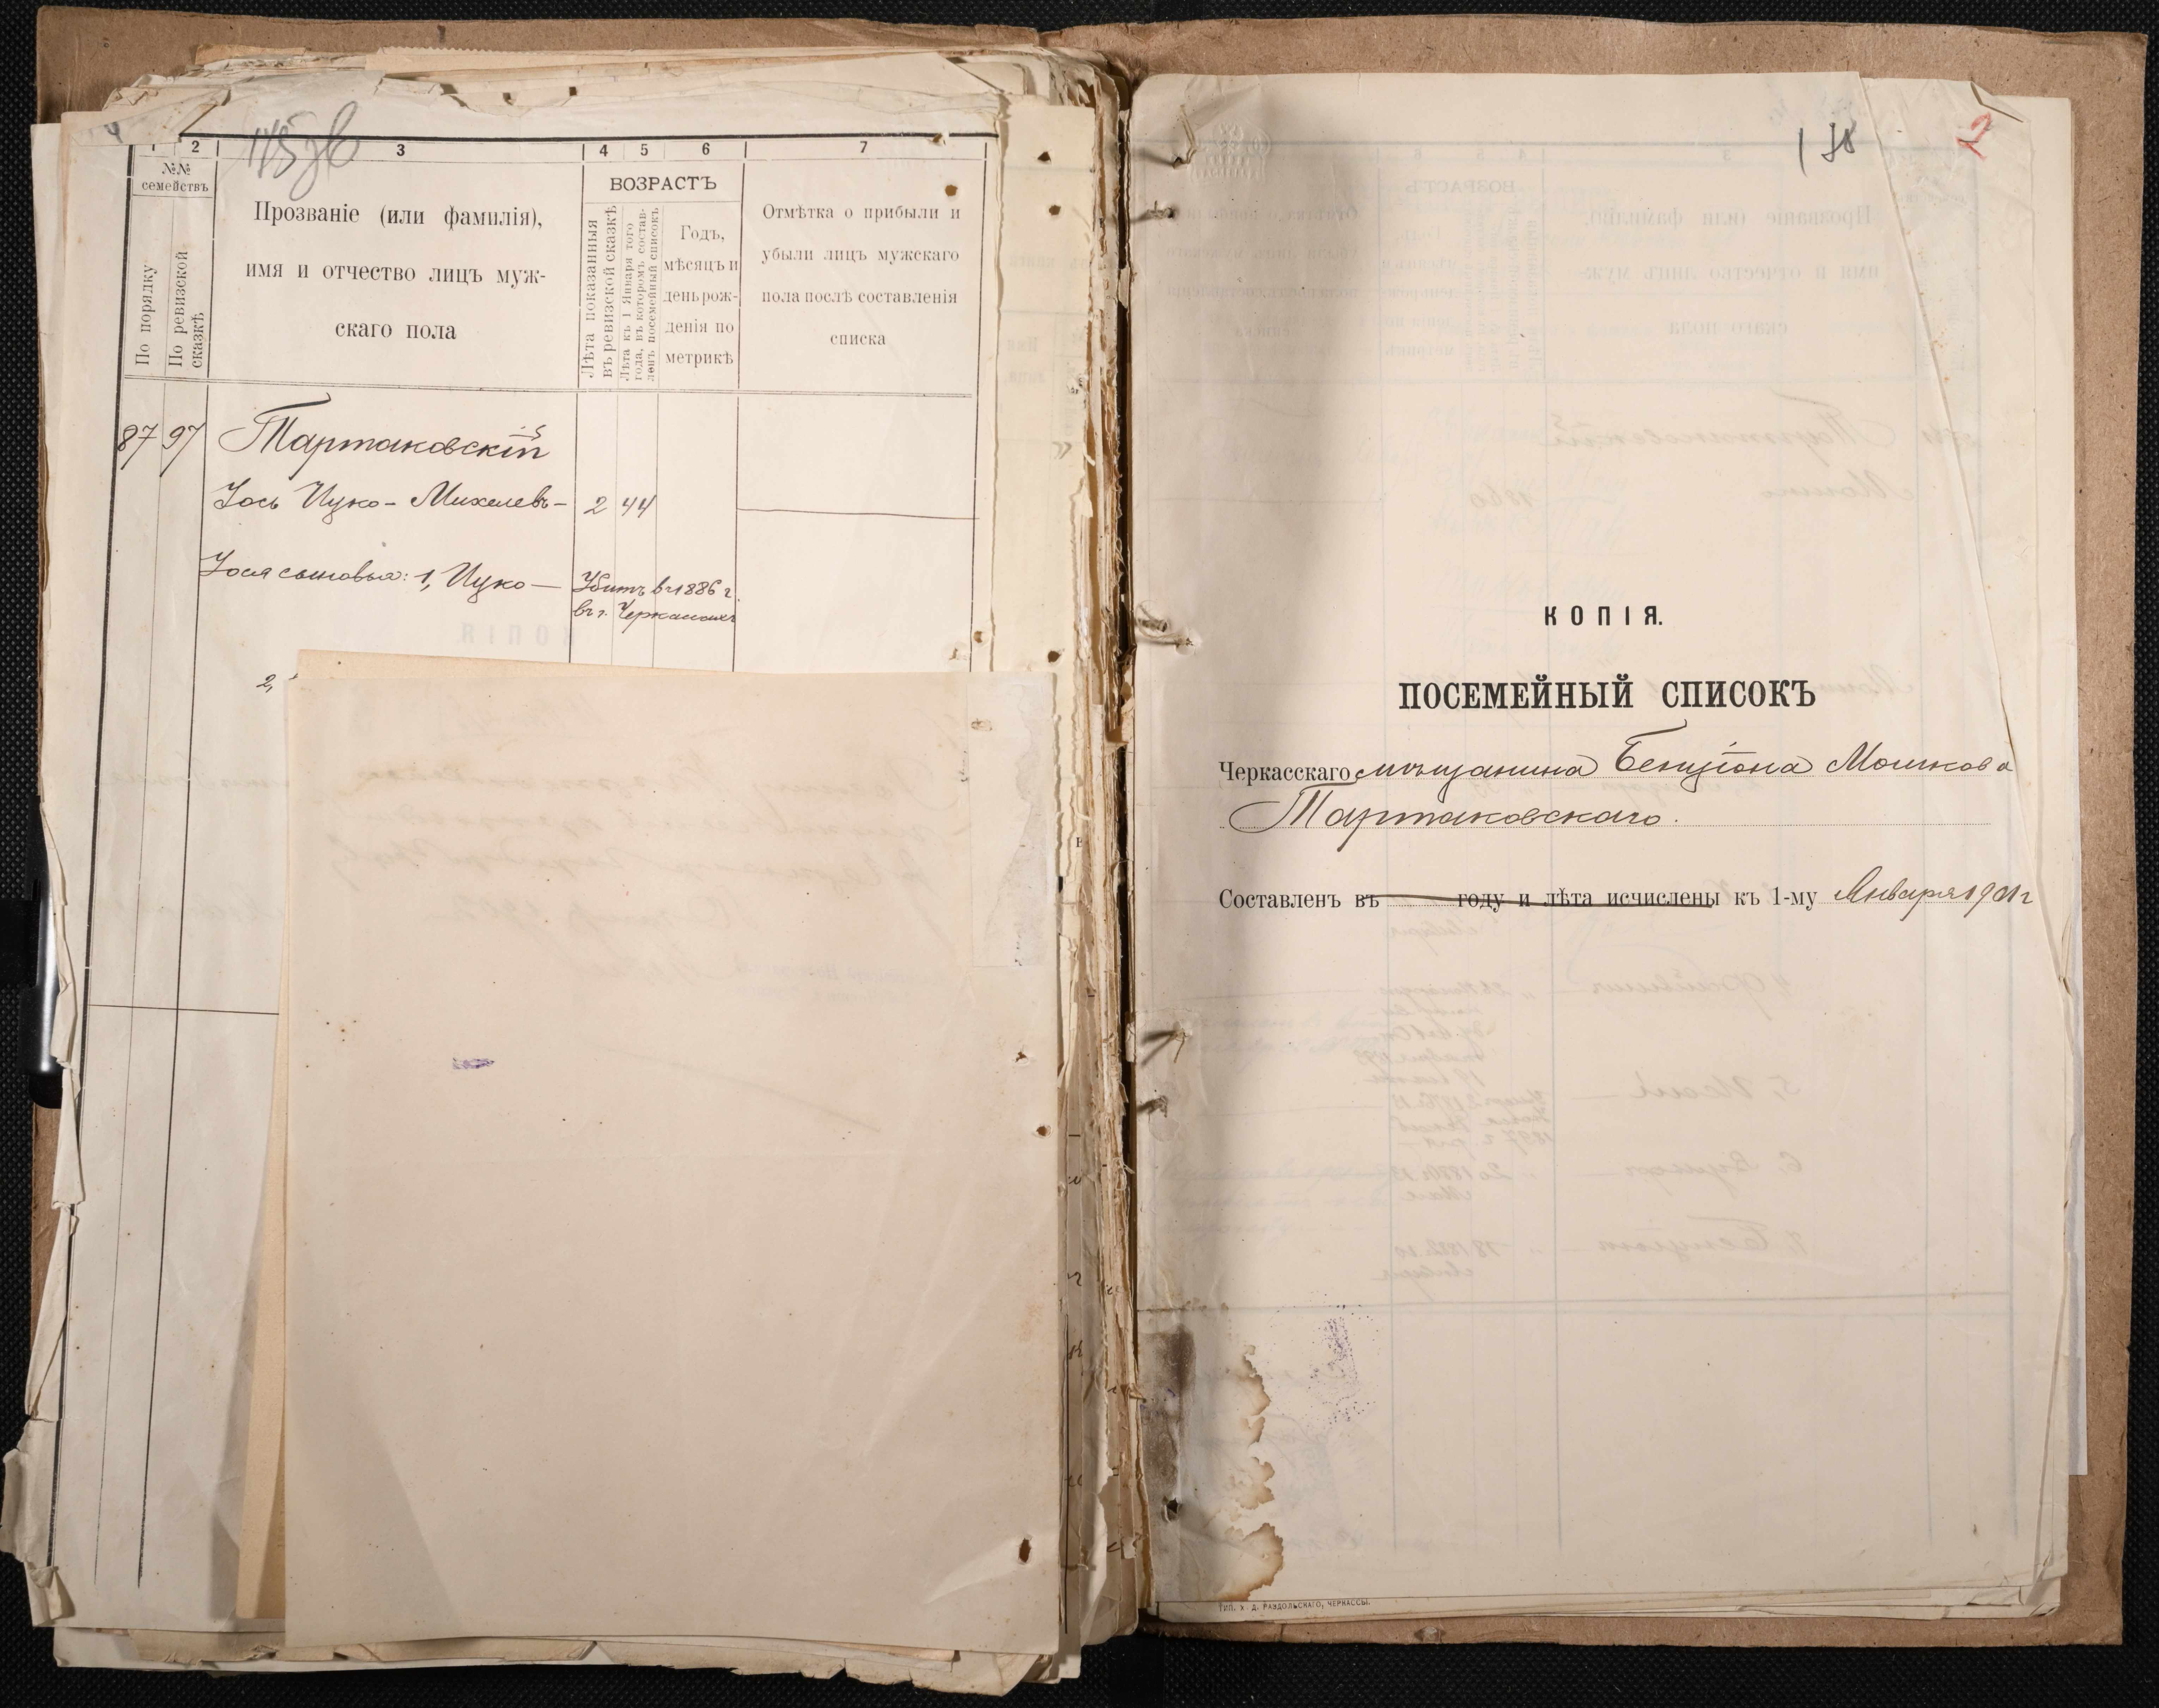 1 2 3 4 5 6 7
№№ семействъ
По порядку
По ревизской сказкѣ
Прозваніе (или фамилія),
имя и отчество лицъ муж-
скаго пола
ВОЗРАСТЪ
Лѣта показанныя
въ ревизской сказкѣ
Лѣта къ 1 Января того
года, въ которомъ состав-
ленъ посемейный списокъ
Годъ,
мѣсяцъ и
день рож-
денія по
метрикѣ
Отмѣтка о прибыли и
убыли лицъ мужскаго
пола послѣ составленія
списка
87 97 Тартаковскій
Іось Ицко-Михелевъ- 2 44
Іося сыновья: 1, Ицко — Убитъ въ 1886 г.
въ г. Черкассахъ
2,
2
КОПІЯ.
ПОСЕМЕЙНЫЙ СПИСОКЪ
Черкасскаго мѣщанина Бенціона Мошкова
Тартаковскаго.
Составленъ въ году и лѣта исчислены къ 1-му Января 1901 г
ТИП. Х. Д. РАЗДОЛЬСКАГО, ЧЕРКАССЫ.